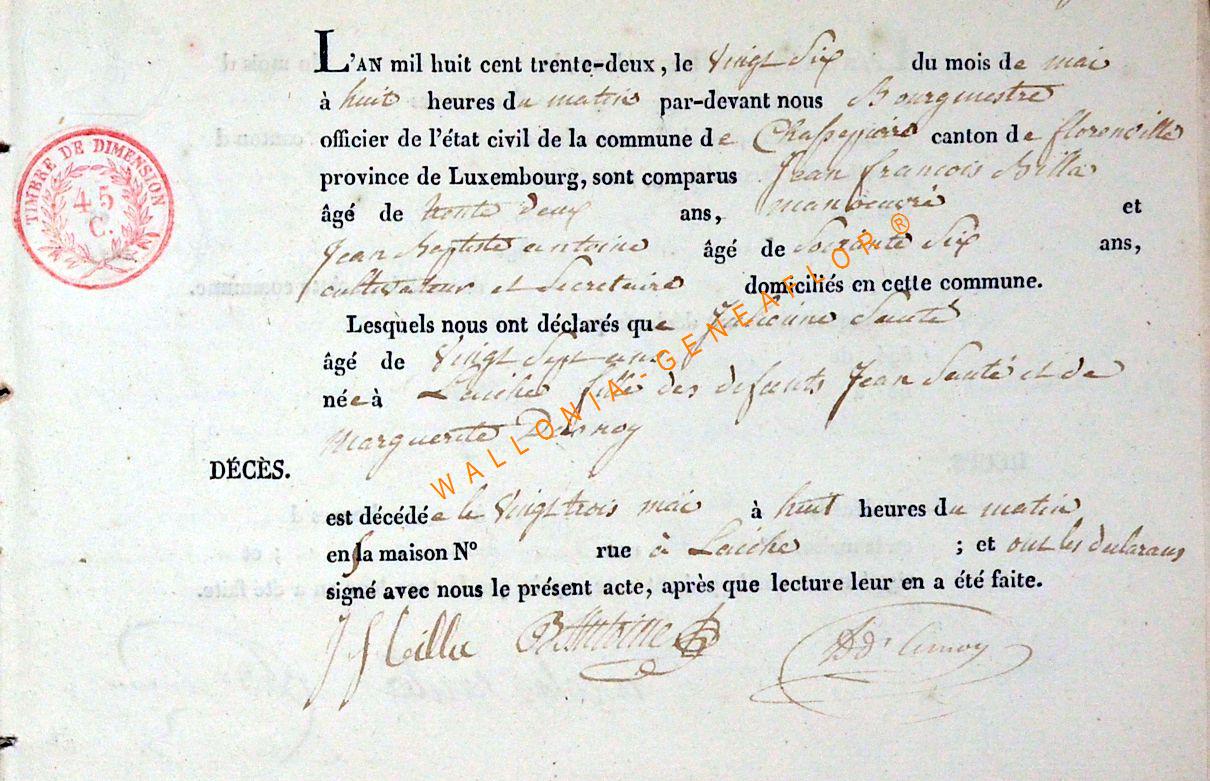 L'AN mil huit cent trente-deux, le Vingt Six du mois de mai
à huit heures du matin par-devant nous Bourgmestre
officier de l'état civil de la commune de Chassepierre canton de florenville
province de Luxembourg, sont comparus Jean francois
âgé de trente deux ans, manoeuvre et
Jean Baptiste antoine âgé de Soixante Six ans,
cultivateur et Secretaire domiciliés en cette commune.
Lesquels nous ont déclarés que Santé
âgé de Vingt Sept ans
née à Laiche fille des defunts Jean Santé et de
Marguerite
DÉCÈS.
est décédée le Vingt trois mai à huit heures du matin
en sa maison N° rue à Laiche ; et ont les declarans
signé avec nous le présent acte, après que lecture leur en a été faite.
TIMBRE DE DIMENSION
45
C.
WALLONIA-GENEAFLOR®